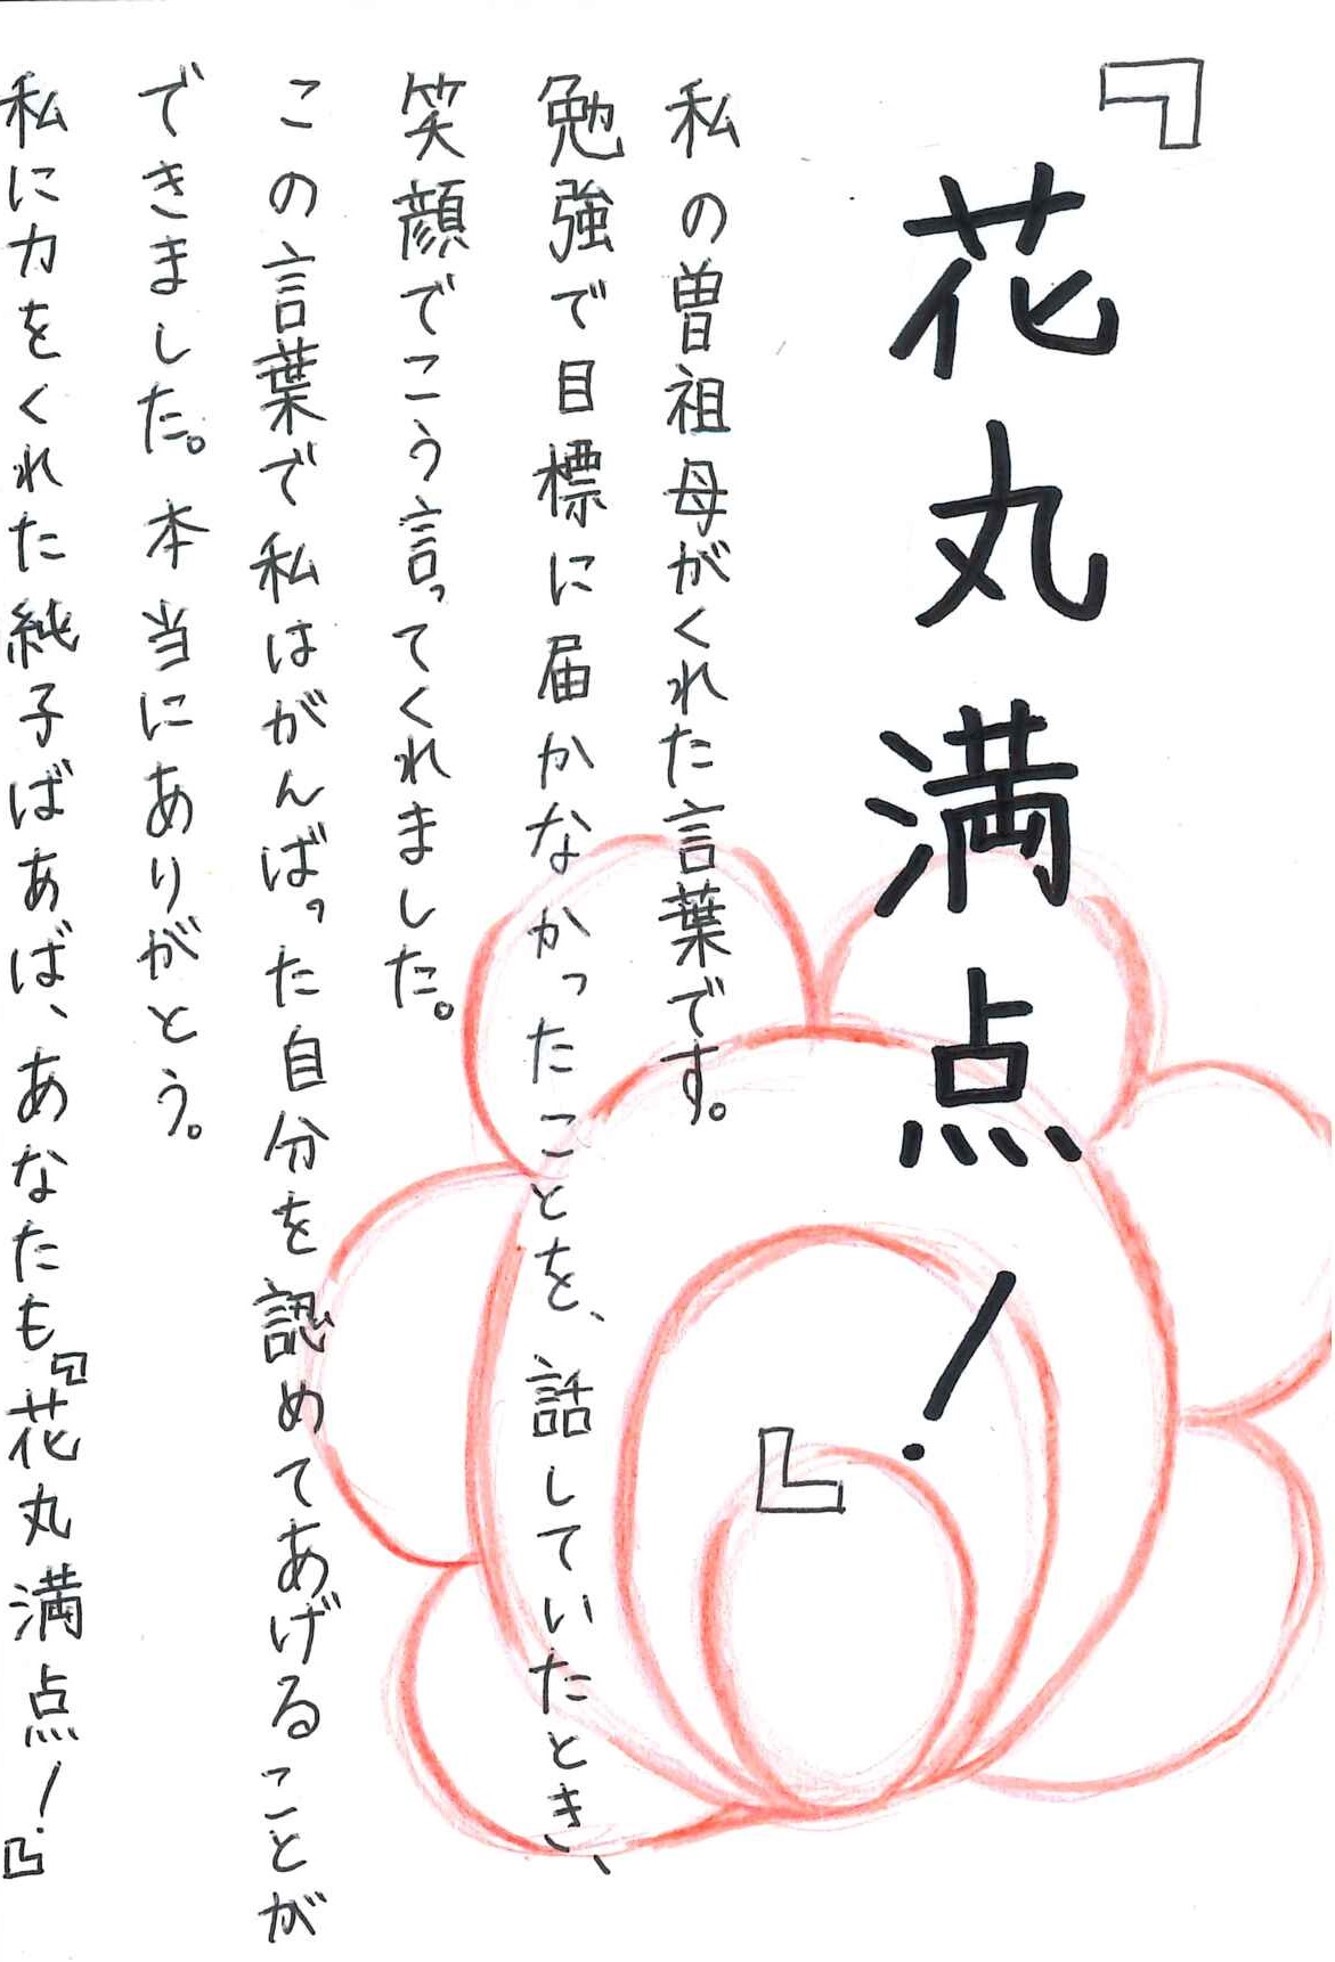 『花丸満点！』
私の曽祖母がくれた言葉です。
勉強で目標に届かなかったことを、話していたとき、
笑顔でこう言ってくれました。
この言葉で私はがんばった自分を認めてあげることが
できました。本当にありがとう。
私に力をくれた純子ばあば、あなたも『花丸満点！』